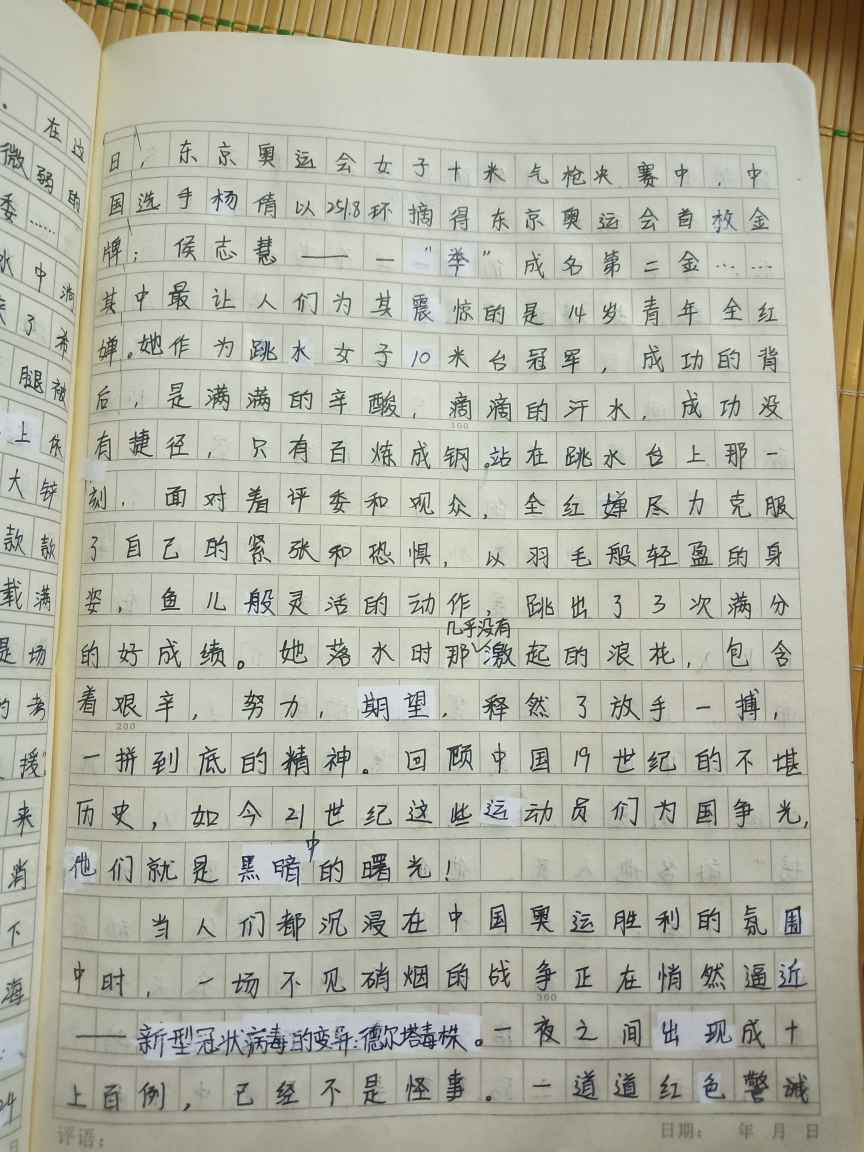 。在这
微弱的
委……
水中淌
来了希
腿被
上依
大钟
款款
载满
是场
的考
援"
来
消
下
海
24
日
日，东京奥运会女子十米气枪决赛中，中
国选手杨倩以251.8环摘得东京奥运会首放金
牌；侯志慧——一"举"成名第二金……
其中最让人们为其震惊的是14岁青年全红
婵。她作为跳水女子10米台冠军，成功的背
后，是满满的辛酸，滴滴的汗水，成功没
100
有捷径，只有百炼成钢。站在跳水台上那一
刻，面对着评委和观众，全红婵尽力克服
了自己的紧张和恐惧，以羽毛般轻盈的身
姿，鱼儿般灵活的动作，跳出了3次满分
的好成绩。她落水时那几乎没有激起的浪花，包含
着艰辛，努力，期望，释然了放手一搏，
200
一拼到底的精神。回顾中国19世纪的不堪
历史，如今21世纪这些运动员们为国争光，
他们就是黑暗中的曙光！
当人们都沉浸在中国奥运胜利的氛围
中时，一场不见硝烟的战争正在悄然逼近
300
——新型冠状病毒的变异：德尔塔毒株。一夜之间出现成十
上百例，已经不是怪事。一道道红色警诫
评语：
日期： 年 月 日